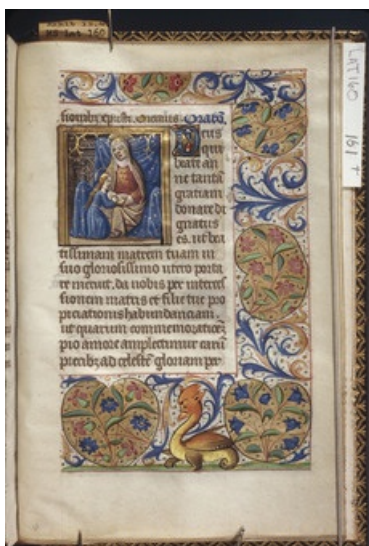 MS Lat 160
LAT 160 161 r
Deus
qui
beate an
ne tantā
gratiam
donare di
gnatus
es. ut bea
tissimam matrem tuam in
suo gloriosissimo utero porta
re meruit. da nobis per interces
sionem matris et filie tue pro
piciationis habundanciam.
ut quarum commemorationē
pio amore amplectimur earū
precibꝫ ad celestē gloriam per